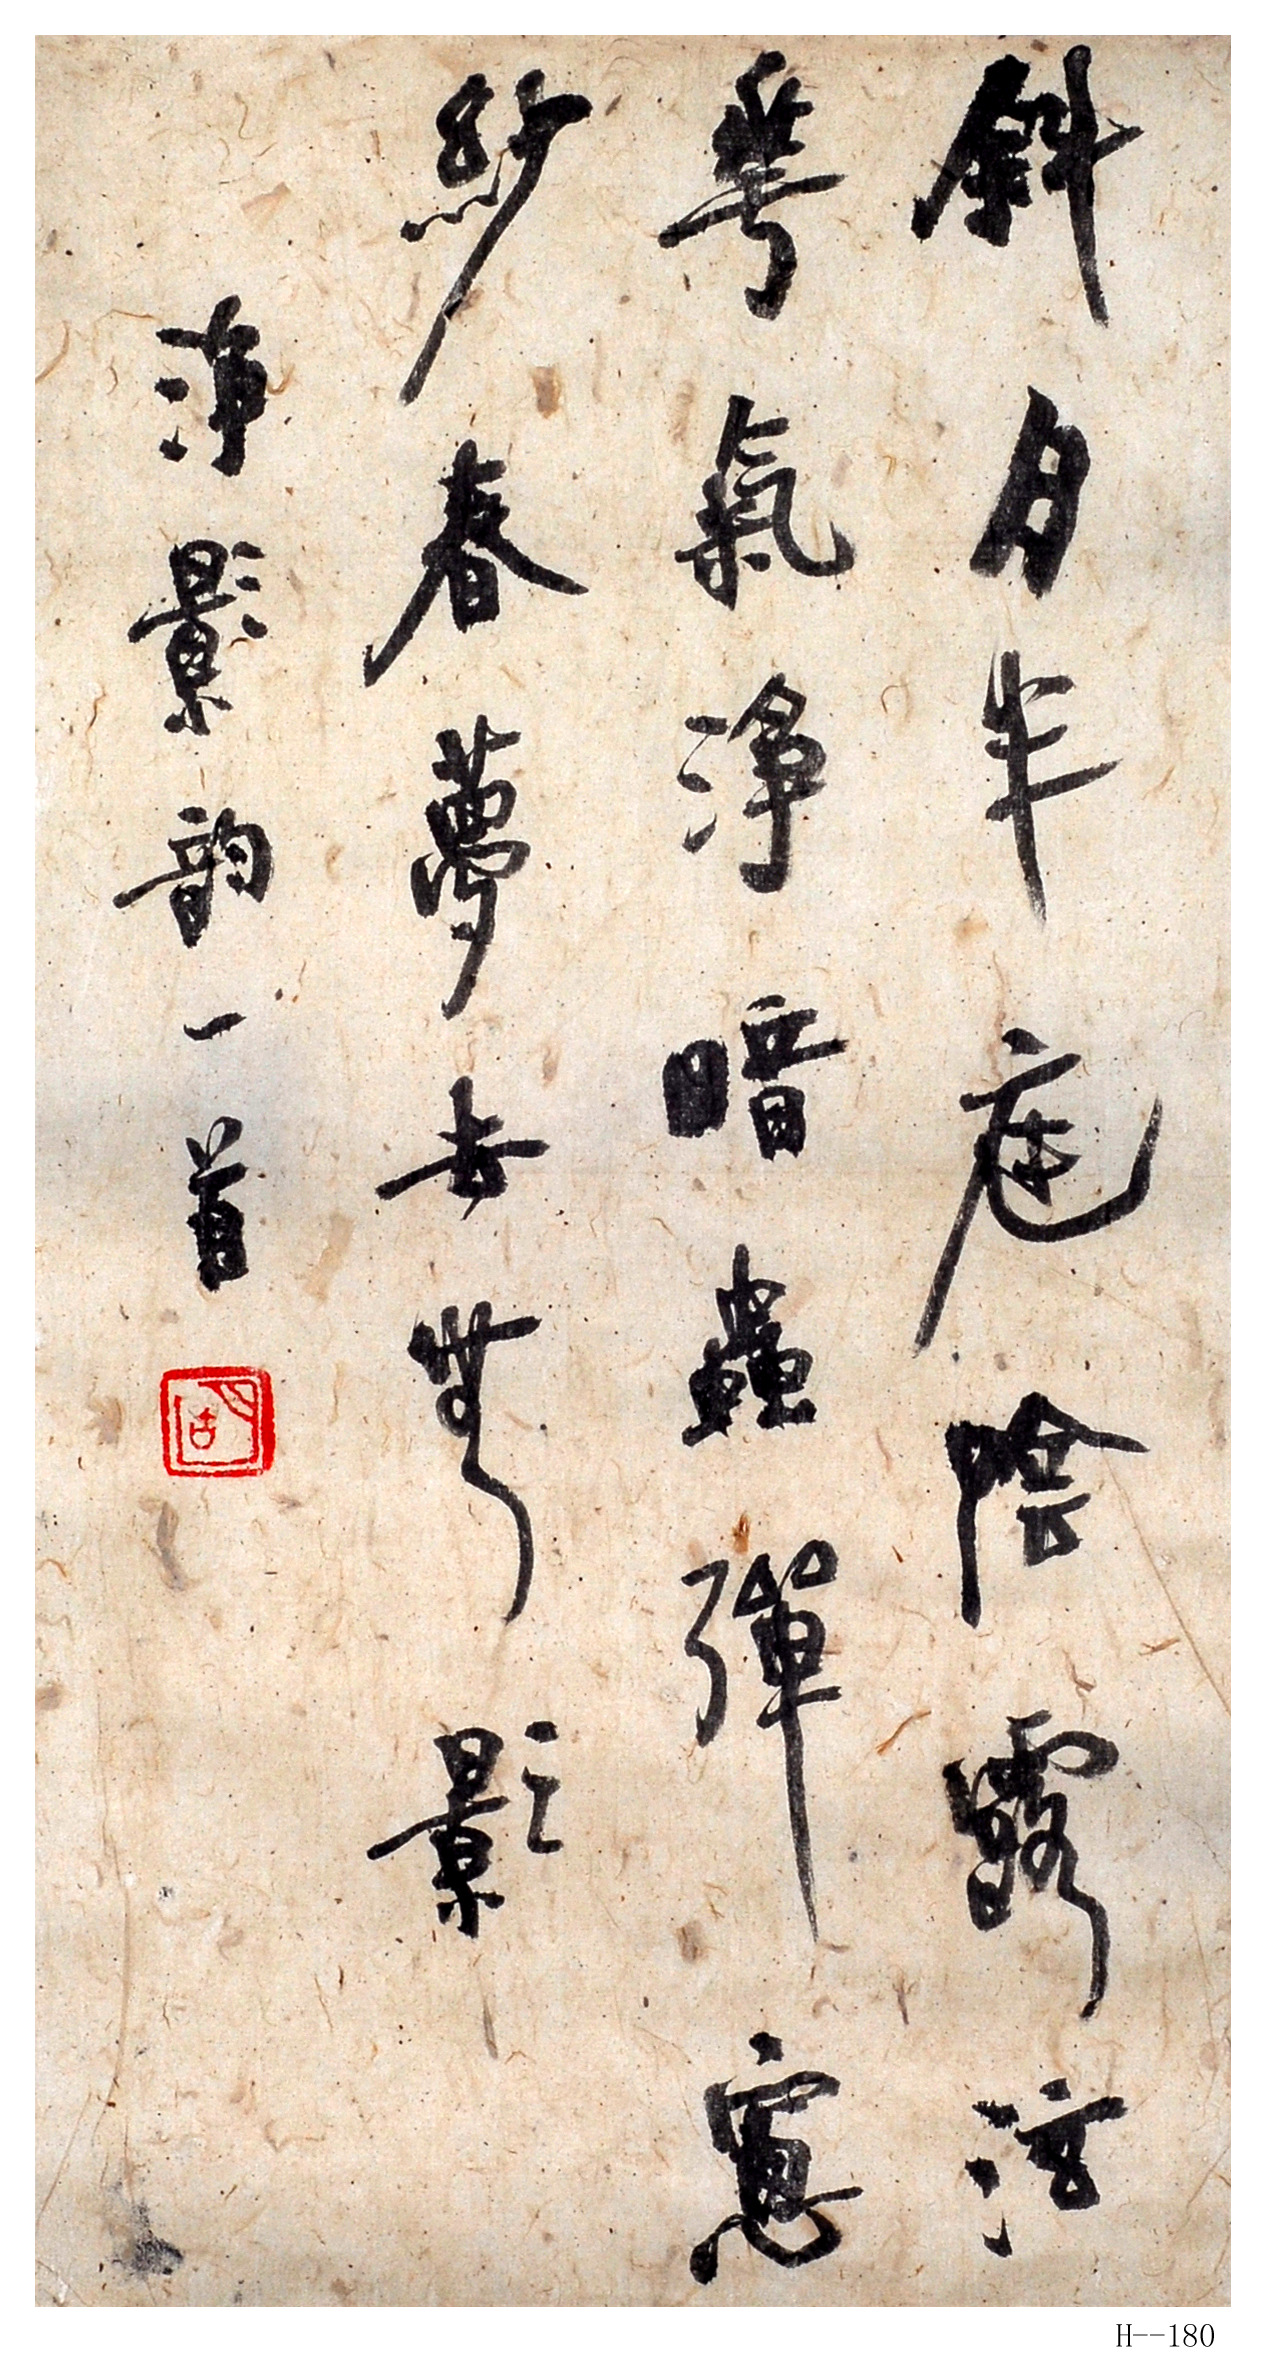 斜月半庭陰露泫
華氣淨暗蟲彈窻
紗春夢去無影
淨影韵一首
H--180